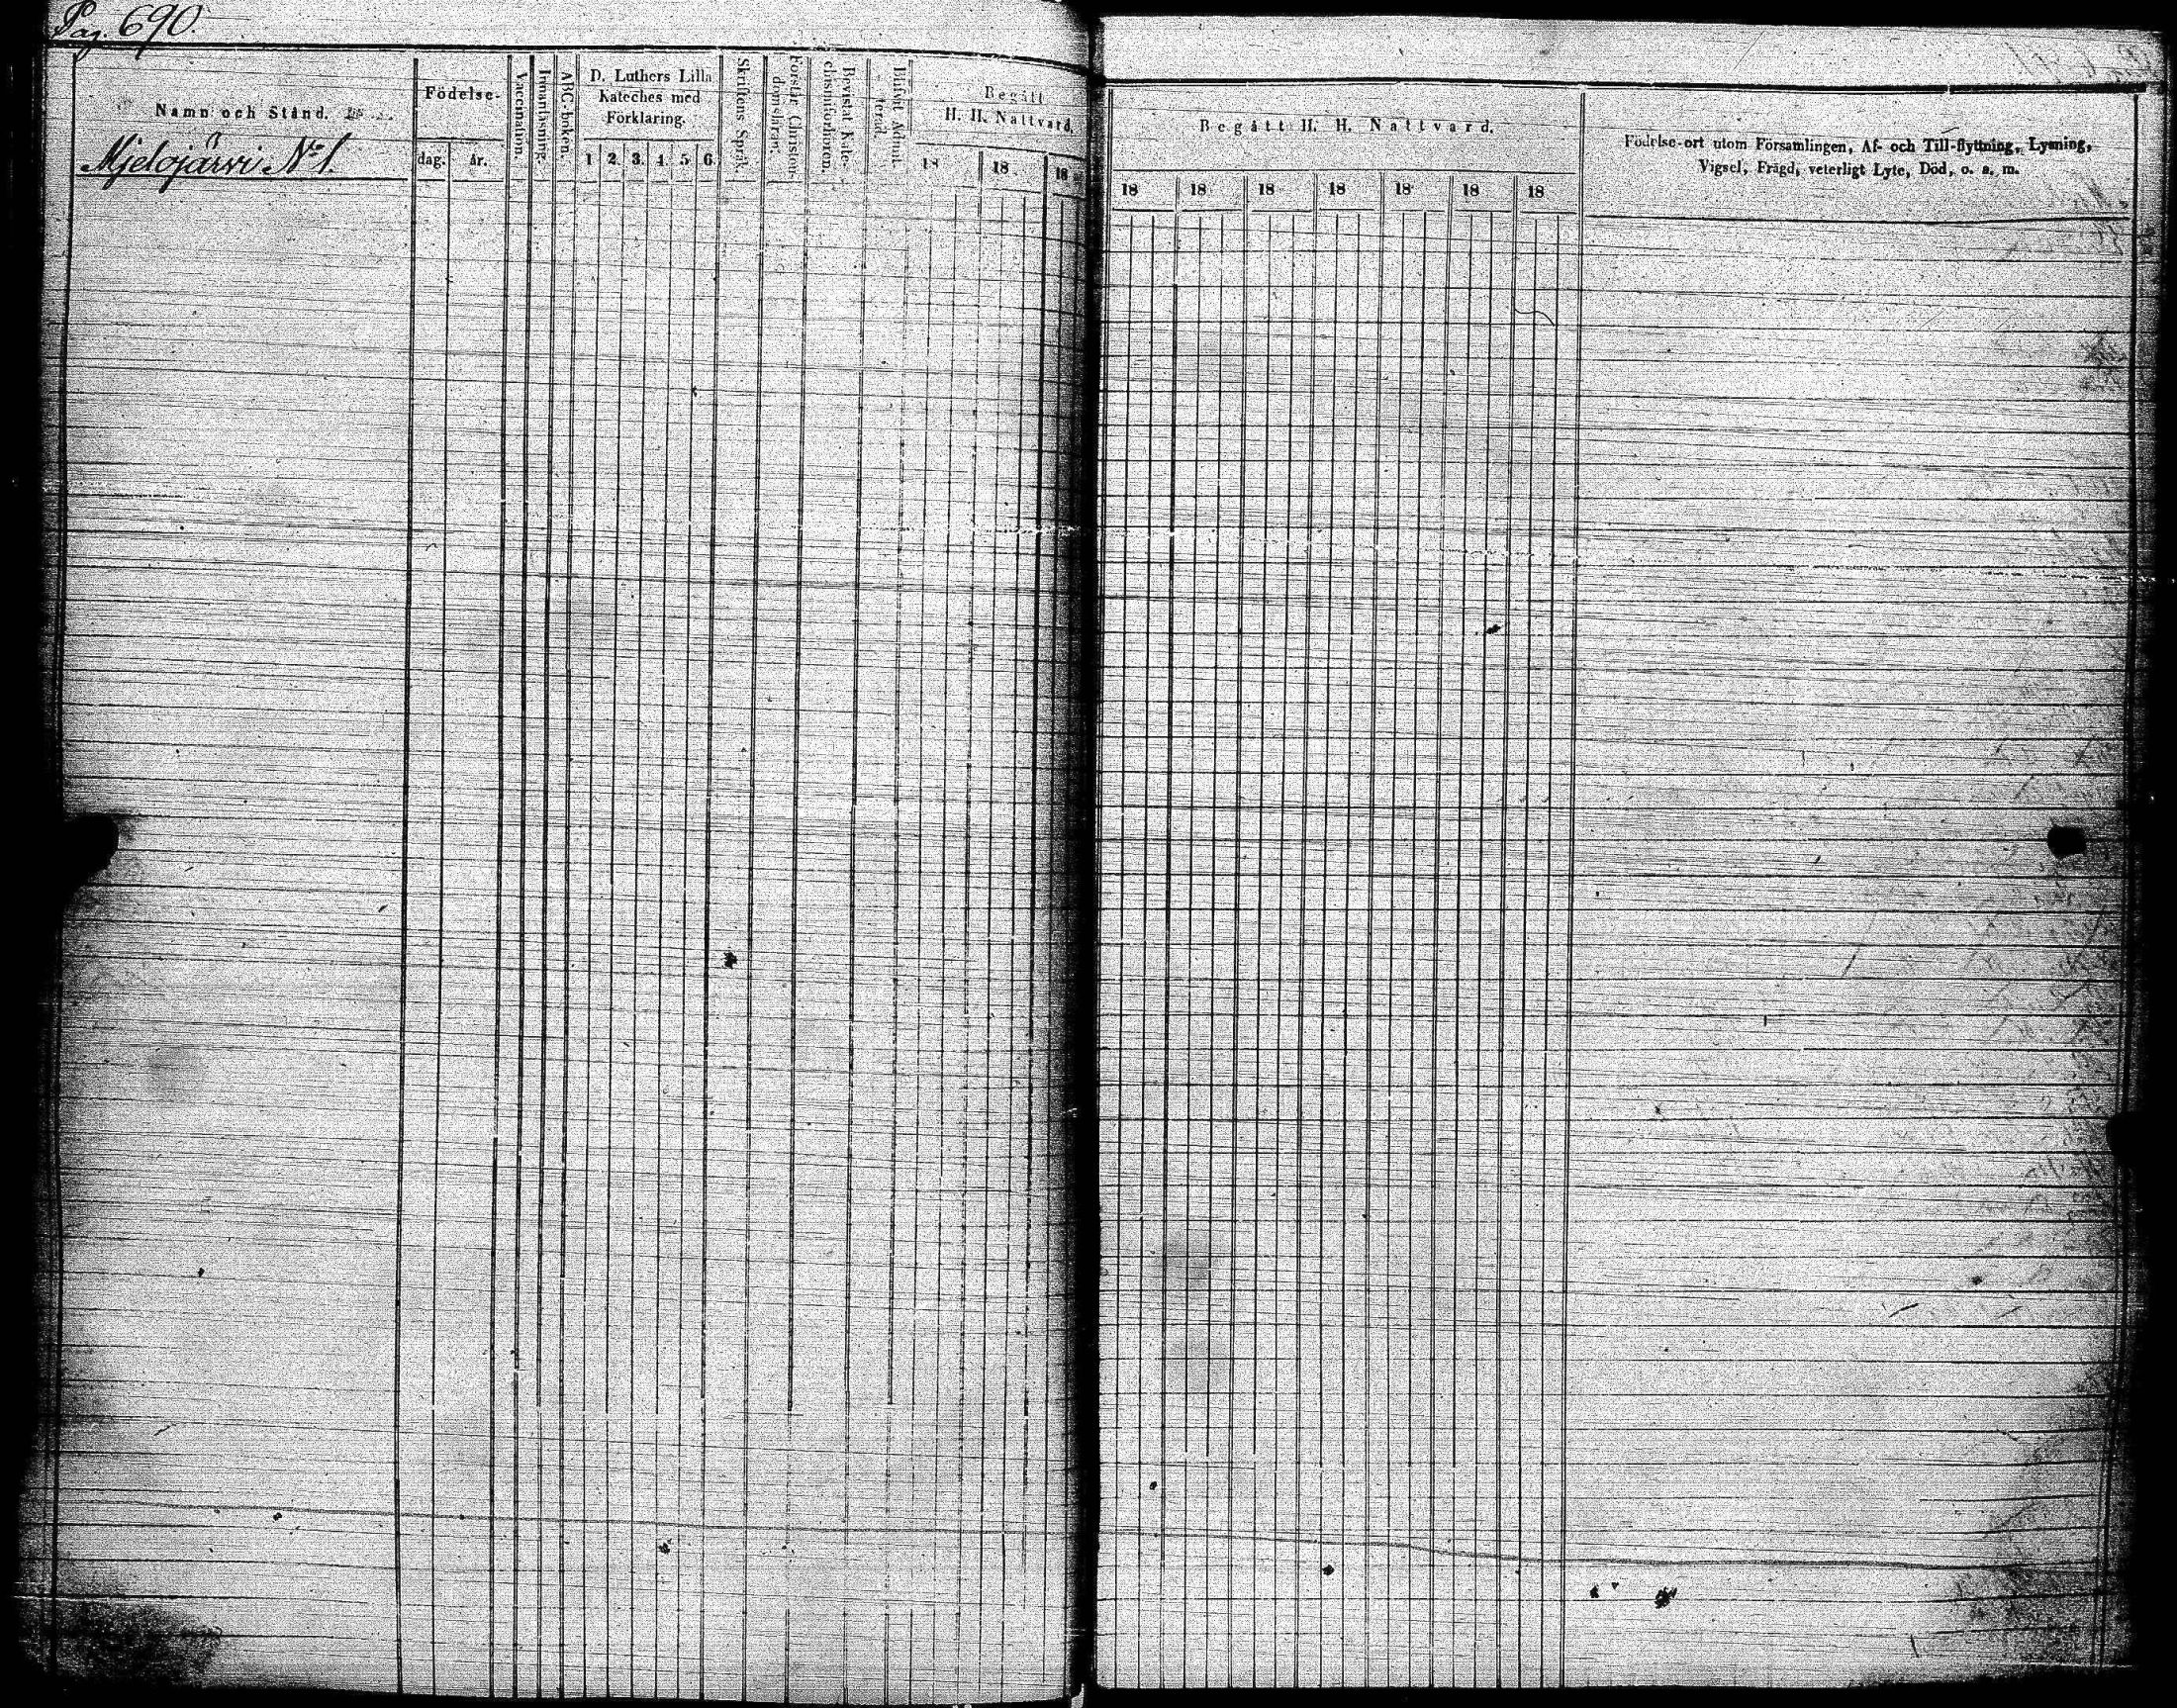 Pag. 690.
Namn och Stånd.
Mjelojärvi No 1.
Födelse-
dag. år.
Vaccination.
Innanläsning.
ABC-boken.
D. Luthers Lilla
Kateches med
Förklaring.
1 2. 3. 4. 5 6.
Skriftens Språk.
Förstår Christen-
doms-läran.
Bevistat Kate-
chismiförhören.
Blifvit Admit-
terad.
Begått
H. H. Nattvard.
18 18 18
Begått H. H. Nattvard.
18 18 18 18 18 18 18
Födelse-ort utom Församlingen, Af- och Till-flyttning, Lysning,
Vigsel, Frägd, veterligt Lyte, Död, o. s. m.